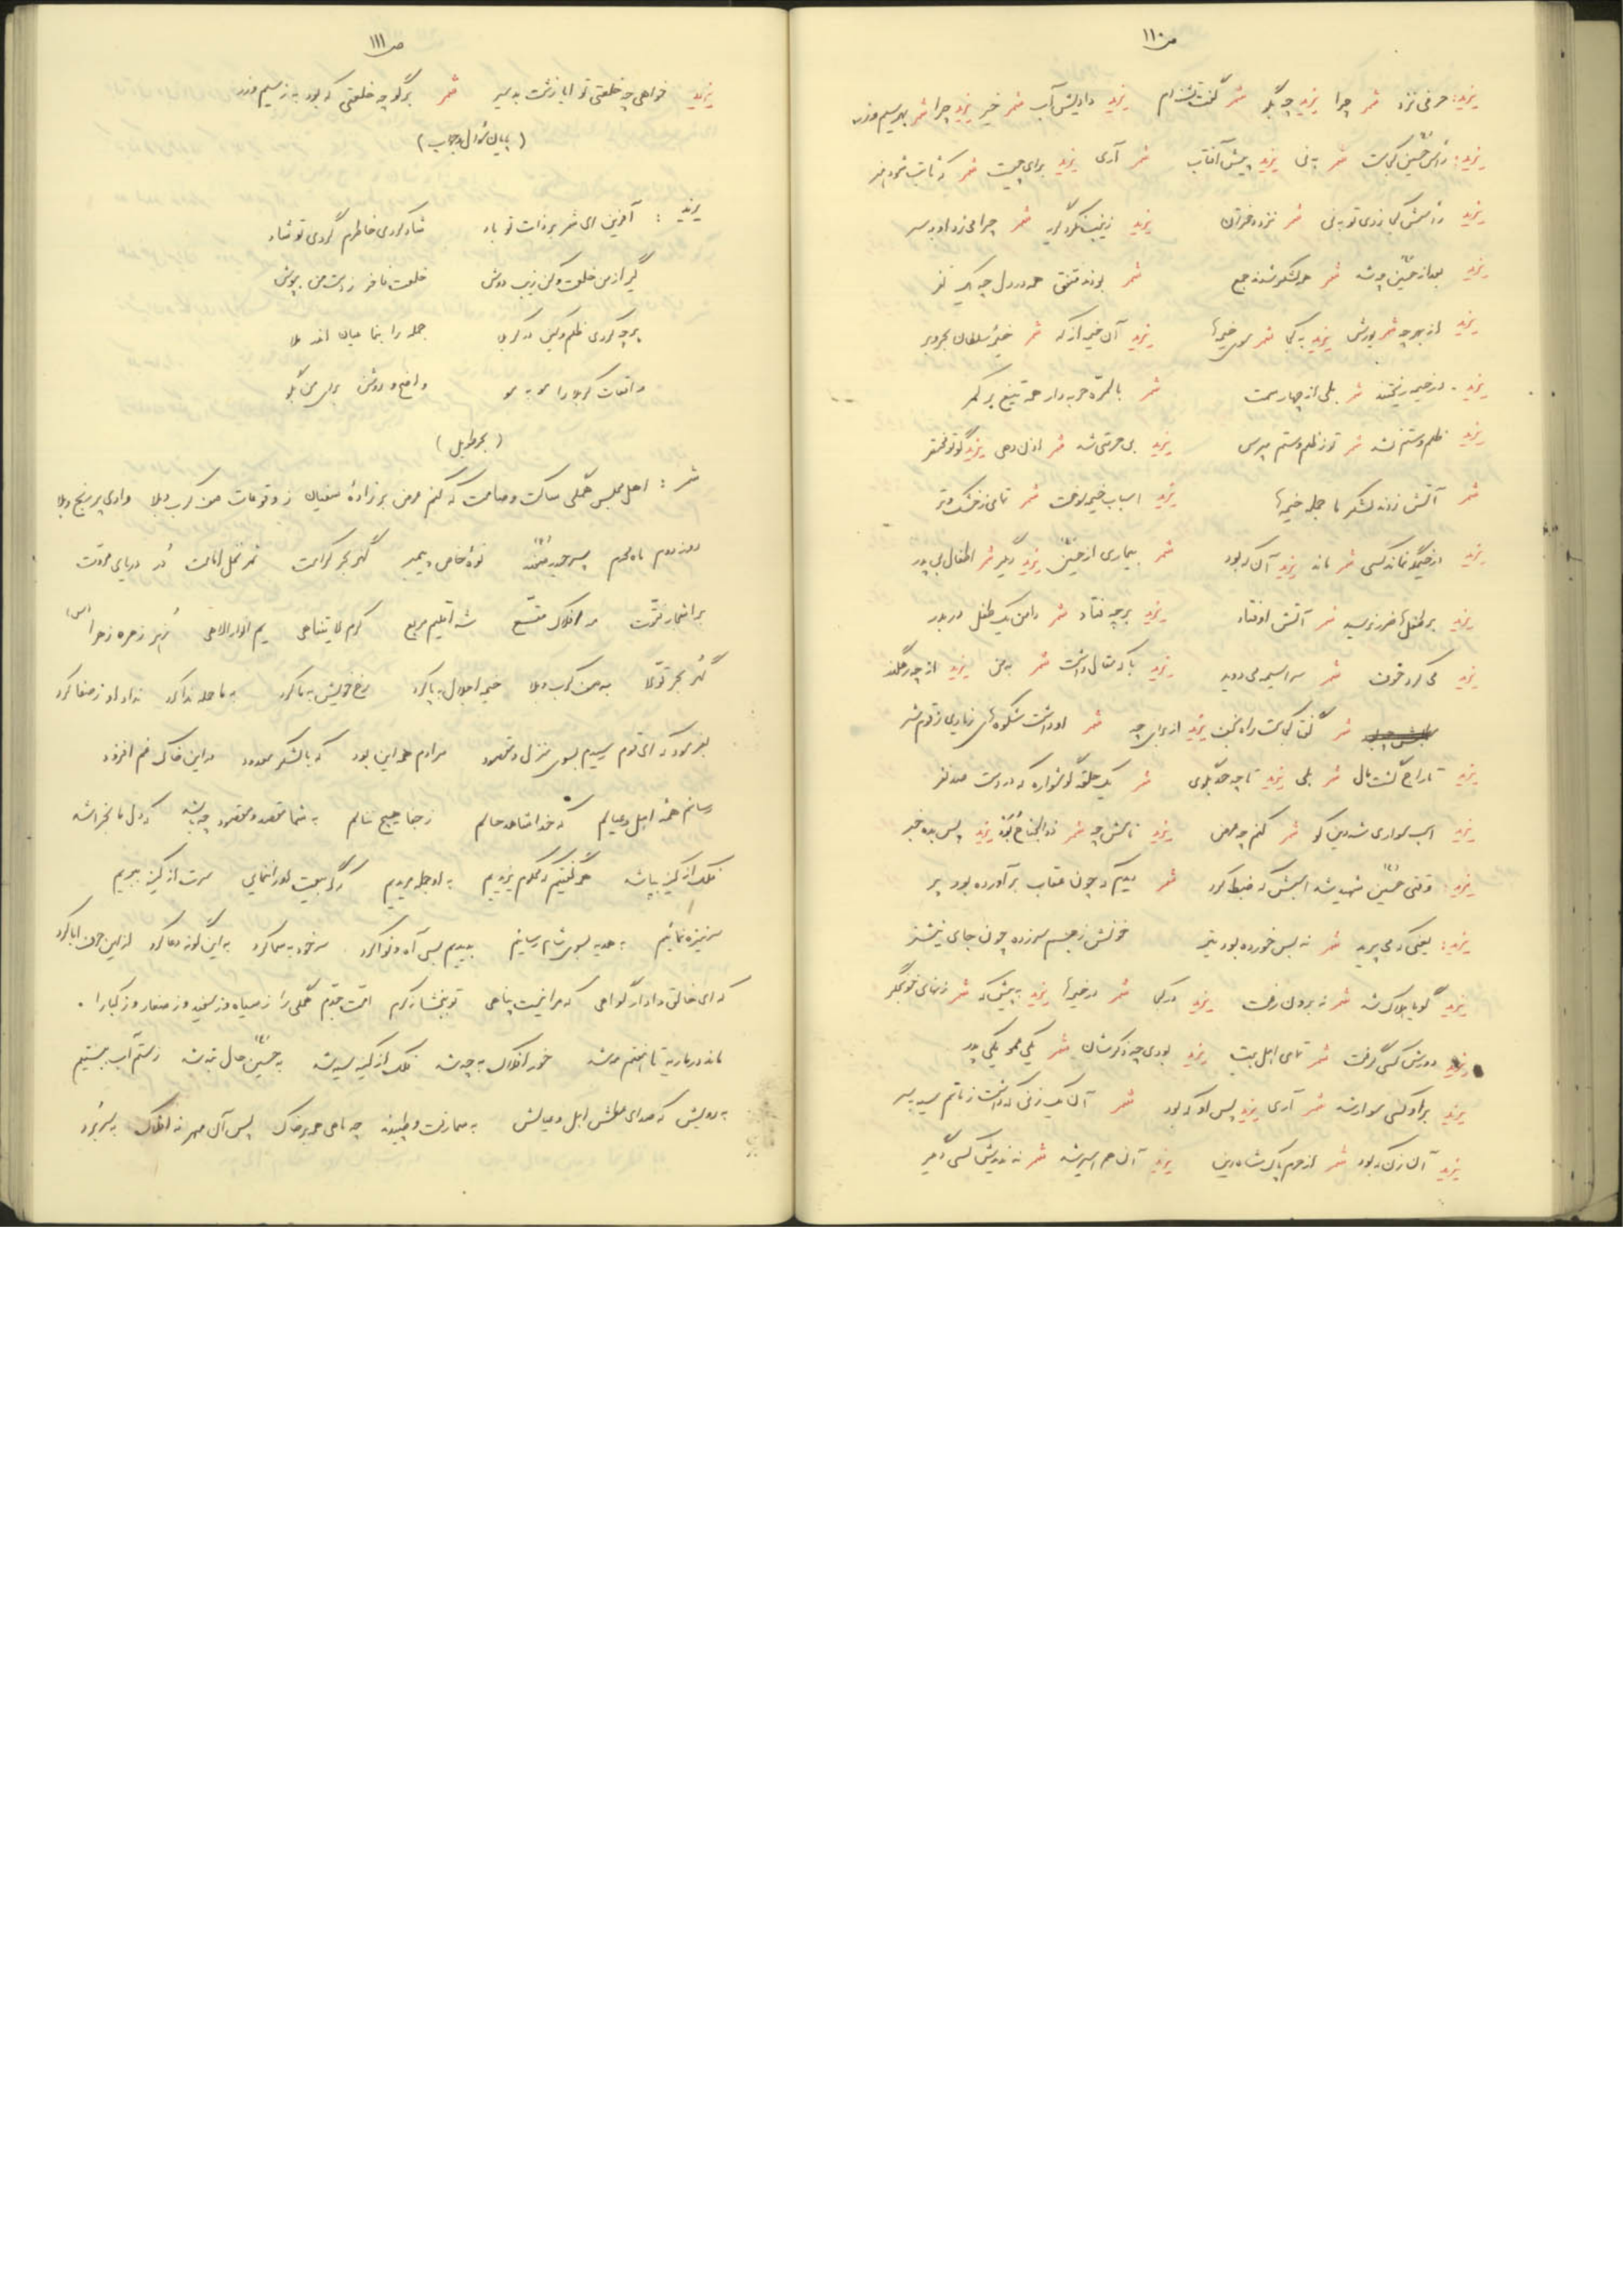 ص ۱۱۰
یزید: حرفی نزد شمر چرا یزید چه بگو شمر گفت تشنه‌ام یزید دادیش آب شمر خیر یزید چرا شمر بهر سیم و زر
یزید: رأس حسین کجاست شمر به نی یزید پیش آفتاب شمر آری یزید برای چیست شمر که
یزید رأسش کجا زدی تو به نی شمر نزد خواهران یزید زینب نکرد گریه شمر چرا می‌زد او به سر
یزید بعد از حسین چه شد شمر همه لشکر شدند جمع یزید بودند متفق همه در دل چه یک نفر
یزید از بهر چه شمر یورش یزید به کجا شمر سوی خیمه‌ها یزید آن خیمه از که شمر خیمه سلطان بحر و بر
یزید در خیمه ریختند شمر بلی از چهار سمت شمر بالمره حربه‌دار همه تیغ بر کمر
یزید ظلم و ستم شد شمر تو از ظلم و ستم مپرس یزید بی‌حرمتی شد شمر یزید گو تو مختصر
شمر آتش زدند لشکر ما جمله خیمه‌ها یزید اسباب خیمه سوخت شمر تمامی ز خشک و تر
یزید در خیمه‌گه نماند کسی شمر ماند یزید آن که بود شمر بیماری از حسین یزید دیگر شمر اطفال بی‌پدر
یزید بر طفل‌ها ضرر نرسید شمر آتش اوفتاد یزید بر چه فتاد شمر دامن یک طفل در بدر
یزید می‌کرد خوف شمر سراسیمه می‌دوید یزید با که مقال داشت شمر به من یزید از چه رهگذر
شمر گفتا کجاست راه نجف یزید از برای چه شمر او داشت شکوه‌های زیادی ز قوم شر
یزید تاراج گشت مال شمر بلی یزید تا چه حد بگوی شمر یک حلقه گوشواره که در دست صد نفر
یزید اسب سواری شه دین کو شمر کنم چه عرض یزید نامش چه شمر ذوالجناح بُد یزید پس بده خبر
یزید: وقتی حسین شهید شد اسبش که ضبط کرد شمر دیدم که چون عقاب برآورده بود پر
یزید: یعنی که می‌پرید شمر نه بس خورده بود تیر خونش ز جسم سر زده چون جای نیشتر
یزید گویا هلاک شد شمر نه برون رفت یزید در کجا شمر در خیمه‌ها یزید به پیش که شمر زنهای خونجگر
یزید دورش کسی گرفت شمر تمامی اهل بیت یزید بودی چه ذکرشان شمر یکی عمو یکی پدر
یزید بر او کسی سوار شد شمر آری یزید پس او که بود شمر آن یک زنی که داشت ز ماتم سیه به سر
یزید آن زن که بود شمر از حرم پاک شاه دین یزید آن هم اسیر شد شمر نه ندیدش کسی دگر
ص ۱۱۱
یزید خواهی چه خلعتی تو ایا زشت بدسیر شمر برگو چه خلعتی که بود به ز سیم و زر
(پایان سؤال و جواب)
یزید: آفرین ای شمر بر ذات تو باد شاد کردی خاطرم گردی تو شاد
گیر از من خلعت و کن زیب دوش خلعت فاخر ز دست من بپوش
هر چه کردی ظلم و کین در کربلا جمله را بنما بیان اندر ملا
واقعات کربلا را مو به مو واضح و روشن برای من بگو
(بحر طویل)
شمر: اهل مجلس همگی ساکت و صامت که کنم عرض بر زادهٔ سفیان ز وقوعات صف کرب و بلا وادی پر رنج و بلا
روز دوم ماه محرم پسر حیدر صفدر نوهٔ خاص پیمبر گهر بحر کرامت ثمر نخل امامت دُر دریای مروت
بر اشجار فتوت مه افلاک شه اقلیم مربع کرم لایتناهی یم انوار الاهی زهره زهرا (س)
گهر بحر تولا به صف کرب و بلا خیمه اجلال به پا کرد رخ خویش به ما کرد به ما جمله ندا کرد ندا داد ز صفا کرد
بفرمود که ای قوم رسیدم بسوی منزل و مقصود مرادم همه این بود که با لشکر معدود در این خاک غم افزود
رسانم همه اهل و عیالم که خدا شاهد حالم ز جفا هیچ ننالم به شما مقصد و مقصود چه باشد که دل ما نخراشد
نمک از کینه بپاشد همه گفتیم که محکوم یزیدیم به او جمله مریدیم گر بیعت او را ننمایی سرت از کینه ببریم
سر نیزه نمائیم به هدیه بسوی شام رسانیم بدیدیم بسی آه و نوا کرد سر خود به سما کرد به این گونه دعا کرد از این حرف ابا کرد
که ای خالق دادار گواهی که مرا نیست پناهی تو ببخشا ز کرم امت جدم همگی را ز سیاه و ز سفید و ز صغار و ز کبارا.
ماند در ماریه تا هفتم مه شد خور افلاک به چه شد فلک از کینه سیه شد به حسین حال تبه شد ز ستم آب ببستیم
به رویش که صدای عطش اهل و عیالش به سما رفت و طپیدند چه ماهی همه بر خاک پس آن مهر نه افلاک به سر برد